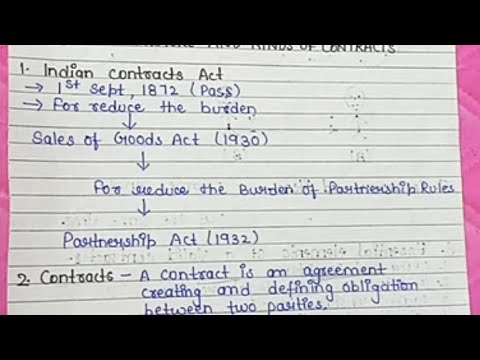 AND KINDS OF CONTRACTS
1. Indian Contracts Act
→ 1st Sept, 1872 (Pass)
→ For reduce the burden
↓
Sales of Goods Act (1930)
↓
For reduce the Burden of Partnership Rules
↓
Partnership Act (1932)
2. Contracts - A contract is an agreement
creating and defining obligation
between two parties.